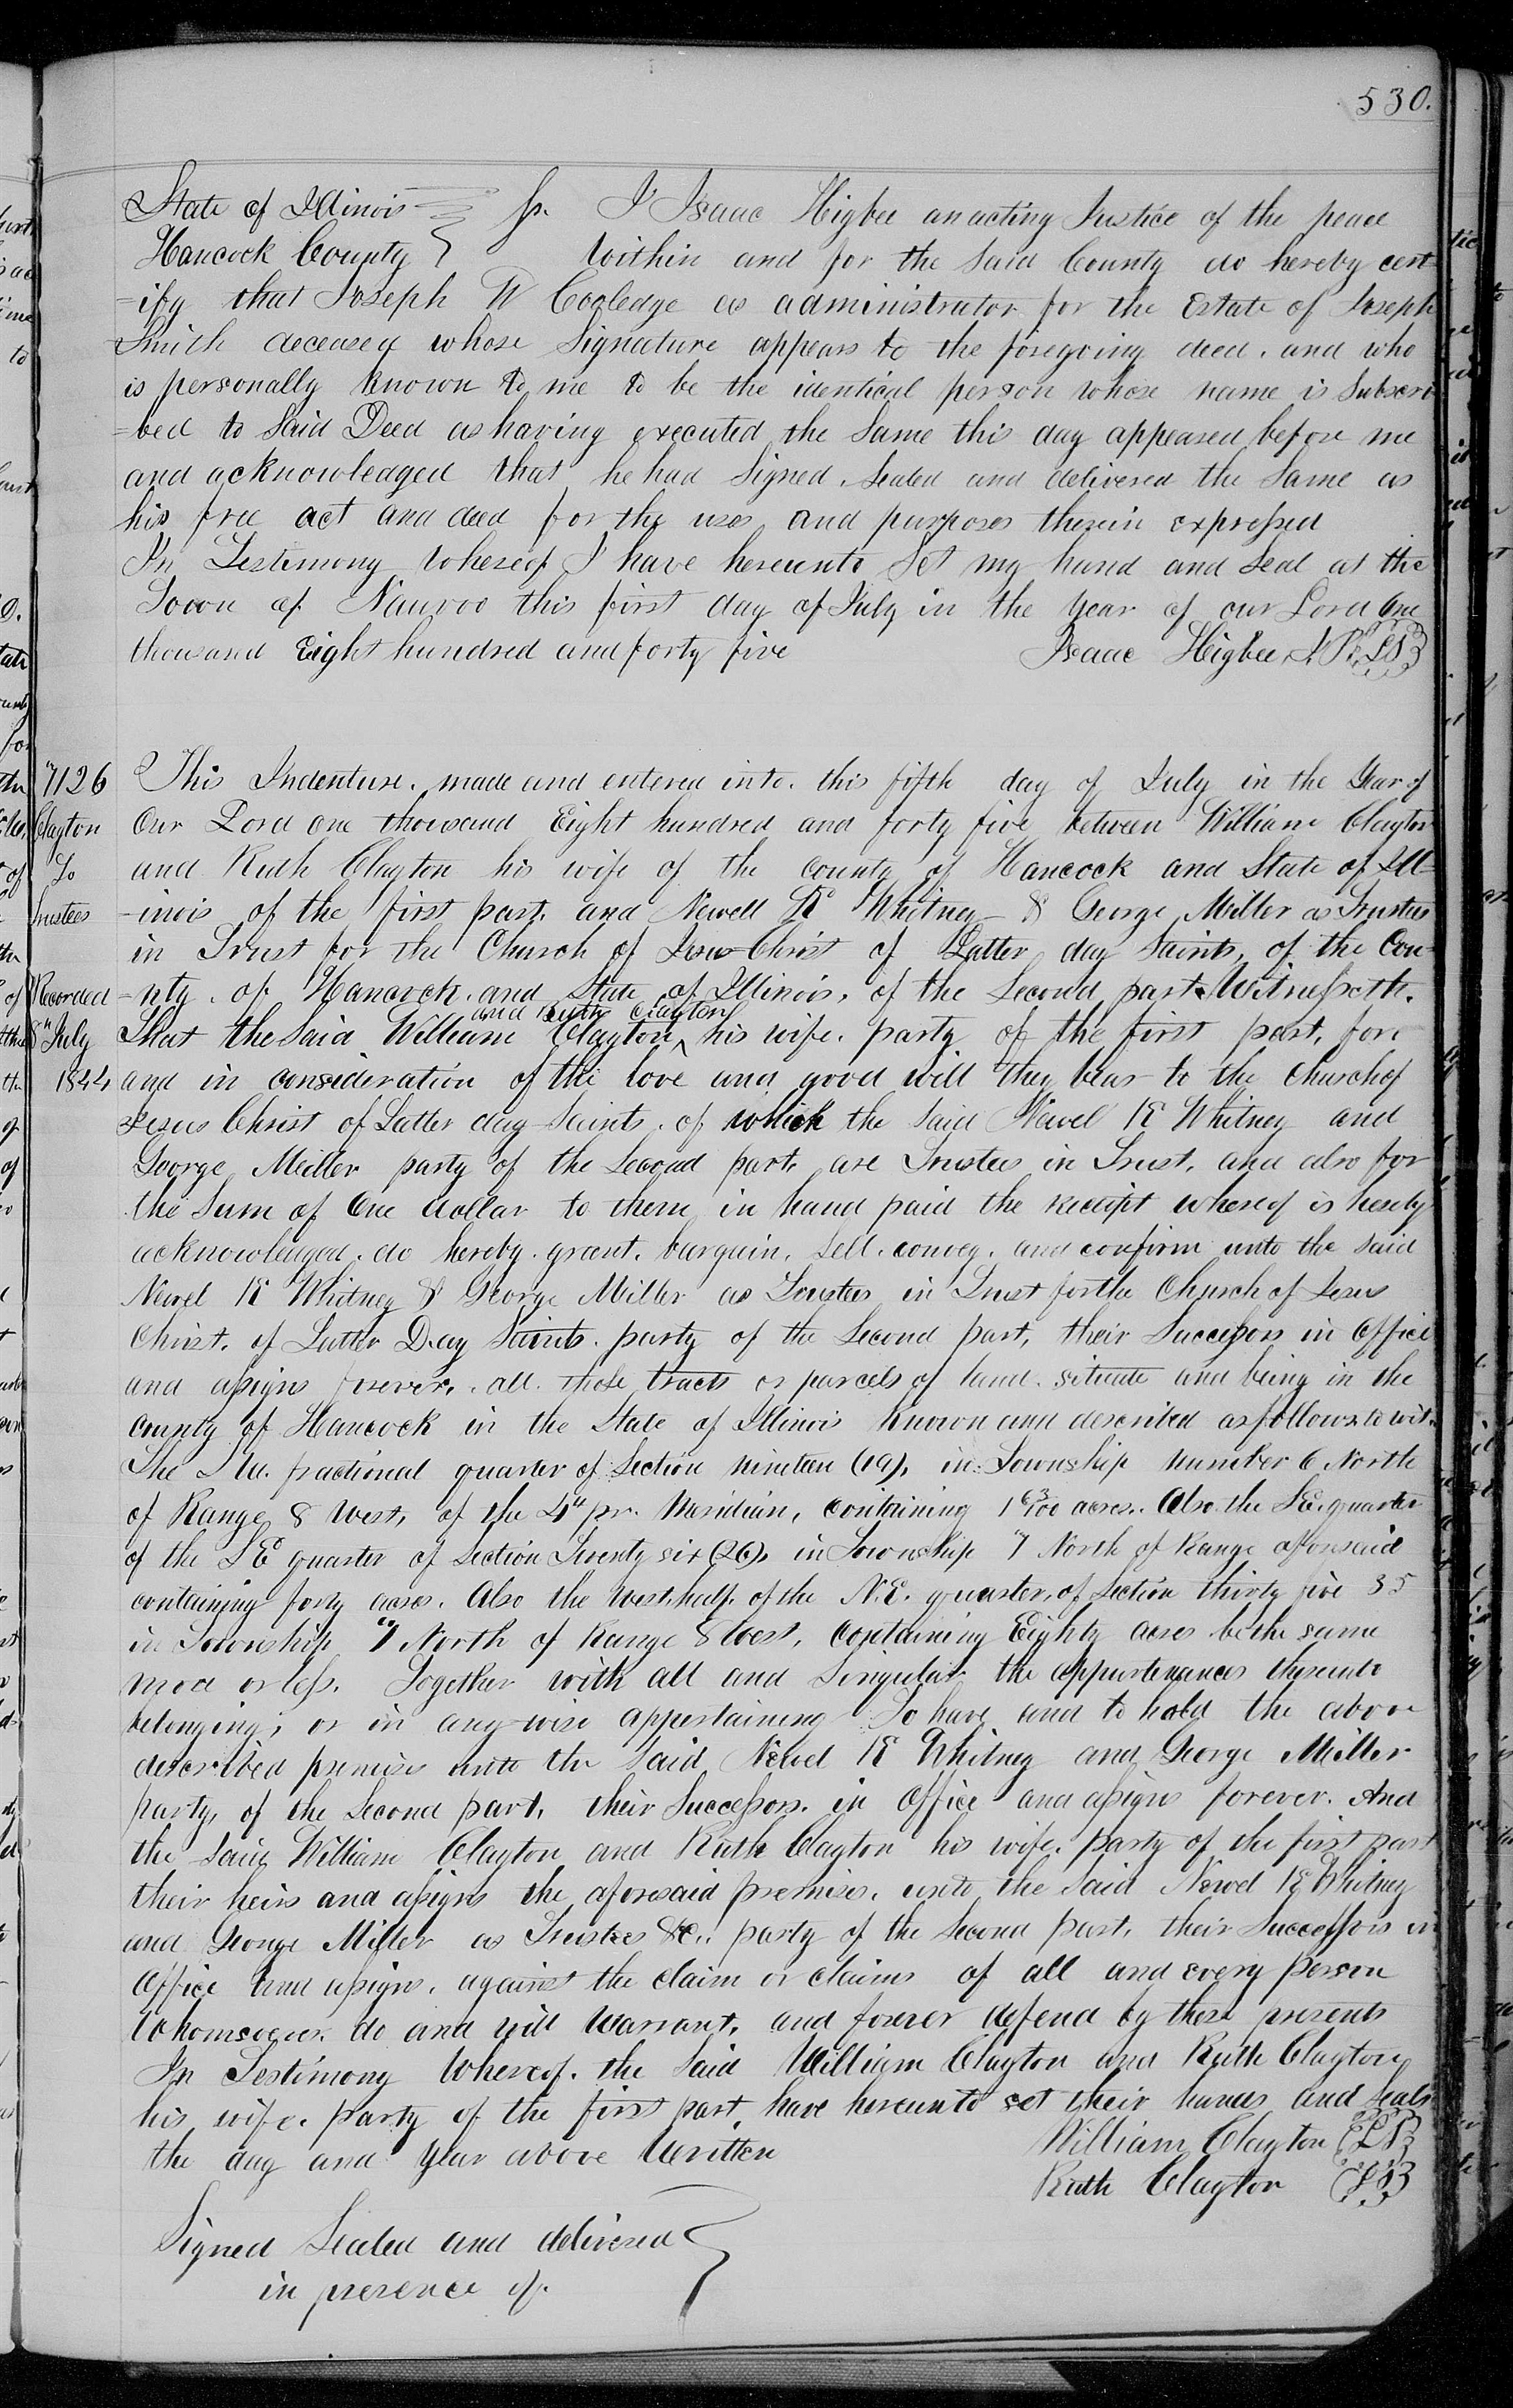 530.
State of Illinois } Ss. I Isaac Higbee an acting Justice of the peace
Hancock County } Within and for the Said County do hereby cert
-ify that Joseph W Cooledge as administrator for the Estate of Joseph
Smith deceased whose Signature appears to the foregoing deed. and who
is personally known to me to be the identical person whose name is Subscri
=bed to Said Deed as having executed the Same this day appeared before me
and acknowledged that he had Signed, Sealed and delivered the Same as
his free act and deed for the uses and purposes therein expressed
In Testimony Whereof I have hereunto Set my hand and Seal at the
Town of Nauvoo this first day of July in the Year of our Lord One
thousand Eight hundred and forty five Isaac Higbee J. P. {LS}
7126
Clayton
To
Trustees
Recorded
8th July
1844
This Indenture. made and entered into. this fifth day of July in the Year of
Our Lord one thousand Eight hundred and forty five between William Clayton
and Ruth Clayton his wife of the county of Hancock and State of Ill-
-inois of the first part. and Newell K Whitney & George Miller as Trustees
in Trust for the Church of Jesus Christ of Latter day Saints, of the Cou-
-nty. of Hancock. and State of Illinois. of the Second part. Witnesseth.
That the Said William Clayton ^ and Ruth Clayton his wife. party of the first part. for
and in consideration of the love and good will they bear to the Church of
Jesus Christ of Latter day Saints. of which the Said Newel K Whitney and
George Miller party of the Second part, are Trustees in Trust. and also for
the Sum of One dollar to them in hand paid the receipt whereof is hereby
acknowledged. do hereby. grant. bargain. Sell. convey. and confirm unto the Said
Newel K Whitney & George Miller as Trustees in Trust for the Church of Jesus
Christ. of Latter Day Saints. party of the Second part, their Successors in Office
and assigns forever. all. those tracts or parcels of land. situate and being in the
County of Hancock in the State of Illinois known and described as follows to wit.
The fractional quarter of Section nineteen (19), in Township number 6 North
of Range 8 West, of the 4th pr. Meridian, containing 1 63/100 acres. Also the S.E. quarter
of the S E quarter of Section Twenty six (26), in Township 7 North of Range aforesaid
containing forty acres. Also the West half of the N.E. quarter, of Section thirty five 35
in Township 7 North of Range 8 West, containing Eighty acres be the same
more or less. Together with all and Singular the appurtenances thereunto
belonging; or in any wise appertaining To have and to hold the above
described premises unto the Said Newel K Whitney and George Miller
party, of the Second part. their Successors. in Office and assigns forever. And
the Said William Clayton and Ruth Clayton his wife. party of the first part
their heirs and assigns the aforesaid premises. unto the Said Newel K Whitney
and George Miller as Trustees &c. party of the Second part. their Successors in
Office and assigns. against the claim or claims of all and every person
Whomsoever. do and will Warrant. and forever defend by these presents
In Testimony Whereof. the Said William Clayton and Ruth Clayton
his wife. party of the first part have hereunto set their hands and Seals
the day and Year above Written William Clayton {LS}
Ruth Clayton {LS}
Signed Sealed and delivered }
in presence of.